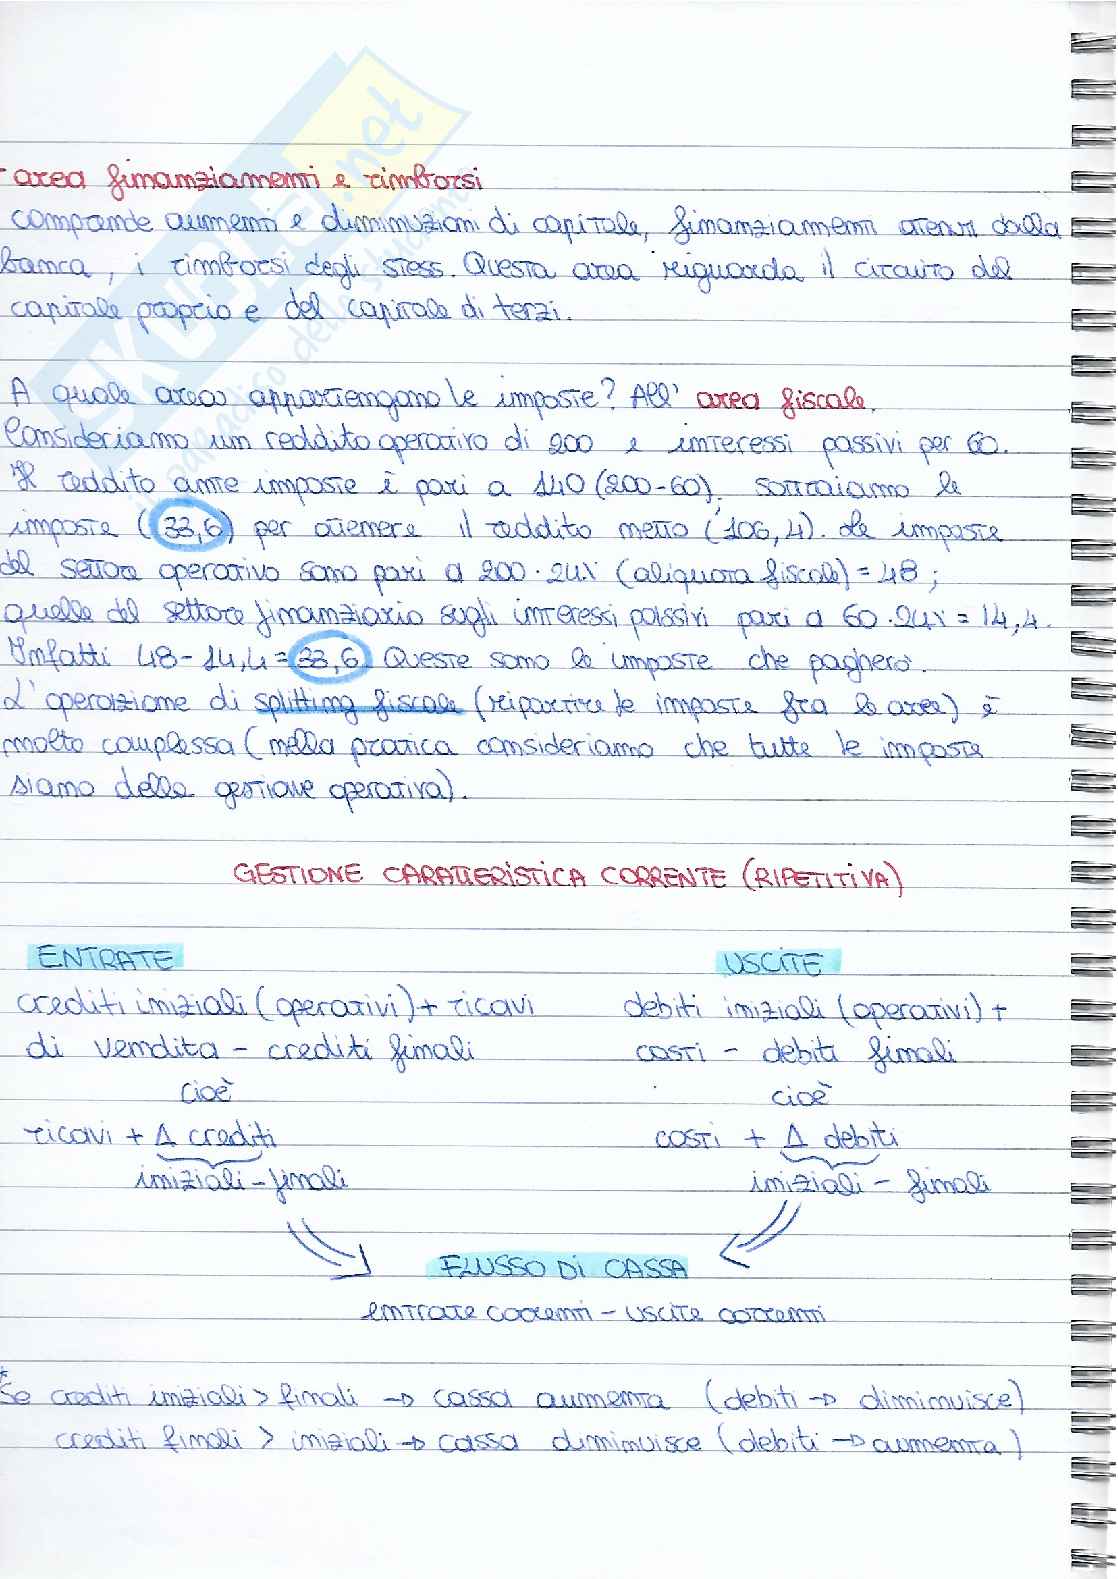 - area finanziamenti e rimborsi
comprende aumenti e diminuzioni di capitale, finanziamenti ottenuti dalla
banca, i rimborsi degli stessi. Questa area riguarda il circuito del
capitale proprio e del capitale di terzi.
A quale area appartengono le imposte? All' area fiscale.
Consideriamo un reddito operativo di 200 e interessi passivi per 60.
Il reddito ante imposte è pari a 140 (200-60). Sottraiamo le
imposte (33,6) per ottenere il reddito netto (106,4). Le imposte
del settore operativo sono pari a 200·24% (aliquota fiscale) = 48;
quelle del settore finanziario sugli interessi passivi pari a 60·24% = 14,4.
Infatti 48-14,4=33,6. Queste sono le imposte che pagherò.
L'operazione di splitting fiscale (ripartire le imposte fra le aree) è
molto complessa (nella pratica consideriamo che tutte le imposte
siano della gestione operativa).
GESTIONE CARATTERISTICA CORRENTE (RIPETITIVA)
ENTRATE
crediti iniziali (operativi) + ricavi
di vendita - crediti finali
cioè
ricavi + Δ crediti
iniziali - finali
USCITE
debiti iniziali (operativi) +
costi - debiti finali
cioè
costi + Δ debiti
iniziali - finali
FLUSSO DI CASSA
entrate correnti - uscite correnti
* Se crediti iniziali > finali → cassa aumenta (debiti → diminuisce)
crediti finali > iniziali → cassa diminuisce (debiti → aumenta)
SKUOLA.net
il paradiso dello studente